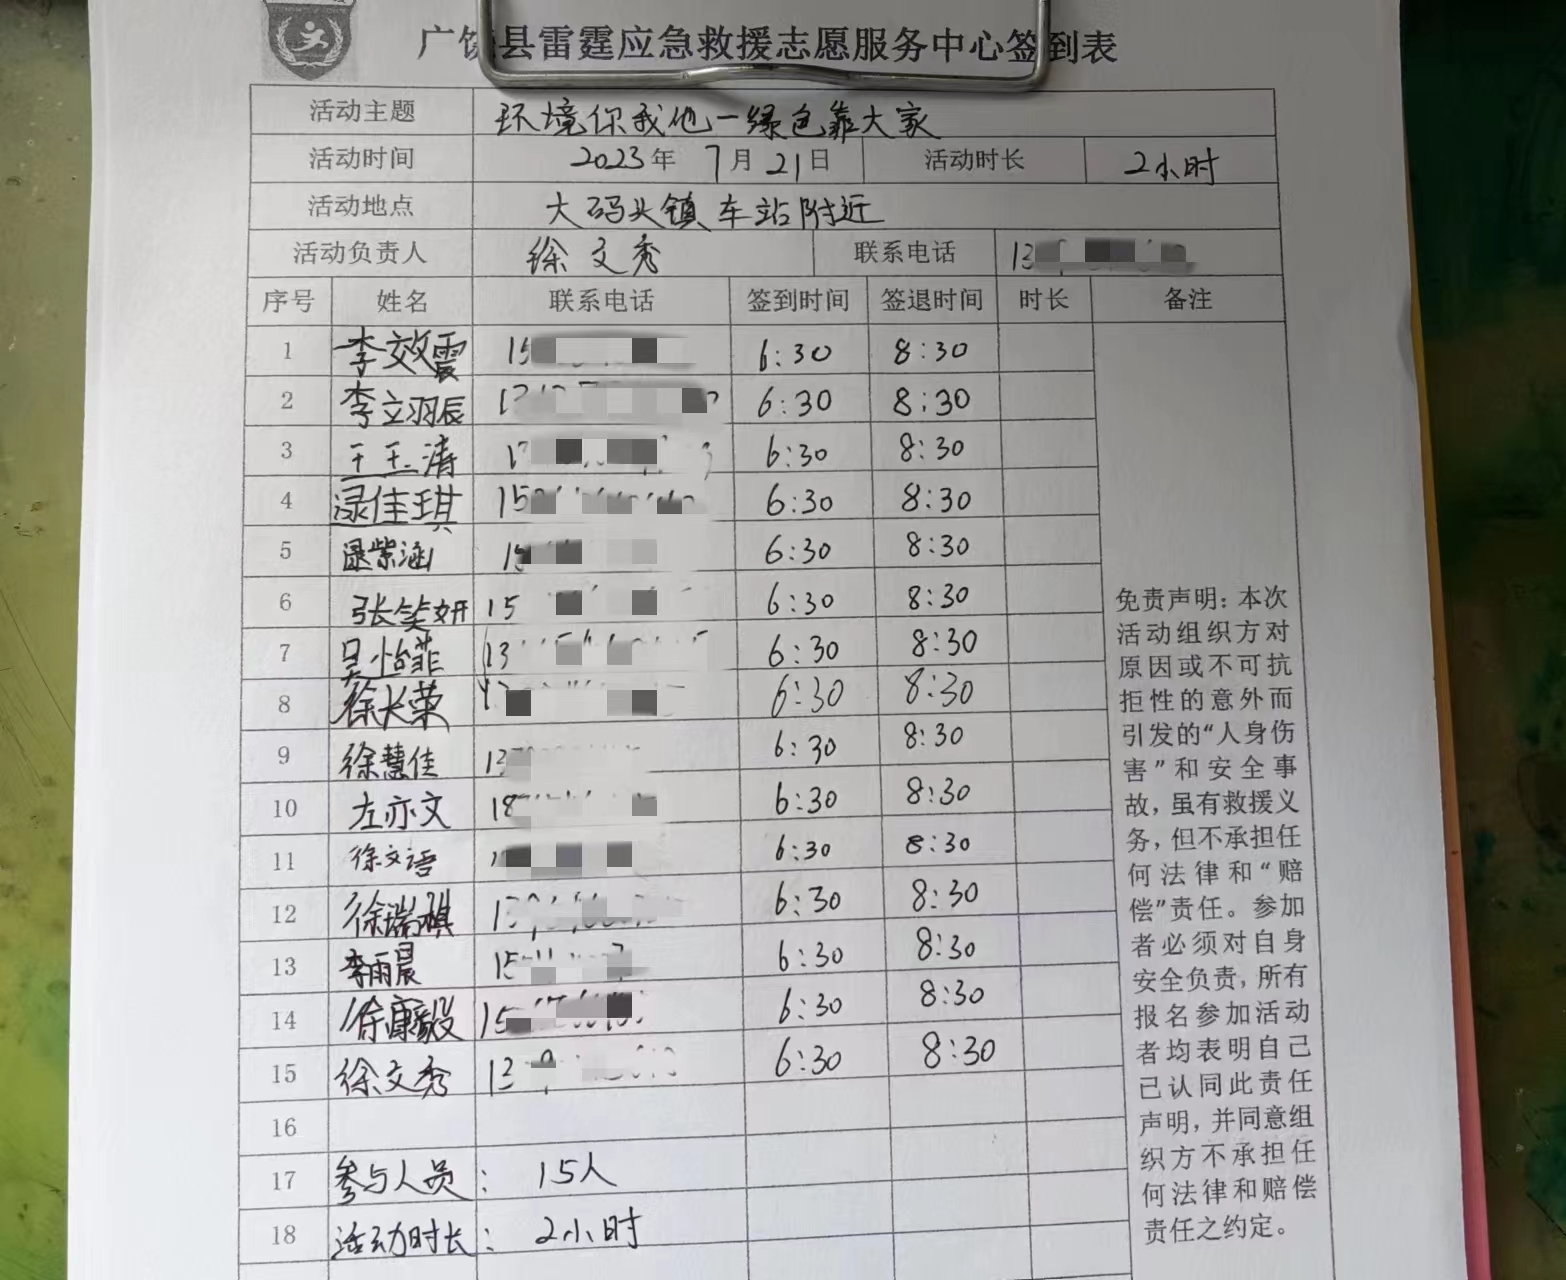 广饶县雷霆应急救援志愿服务中心签到表
活动主题 环境你我他一绿色靠大家
活动时间 2023年 7月21日 活动时长 2小时
活动地点 大码头镇车站附近
活动负责人 徐文秀 联系电话 13
序号 姓名 联系电话 签到时间 签退时间 时长 备注
1 李效震 15 6:30 8:30
2 李立羽辰 6:30 8:30
3 王玉清 6:30 8:30
4 渌佳琪 15 6:30 8:30
5 紫涵 6:30 8:30
6 张笑妍 15 6:30 8:30
7 吴怡菲 13 6:30 8:30
8 徐长荣 6:30 8:30
9 徐慧佳 13 6:30 8:30
10 左亦文 18 6:30 8:30
11 徐文语 6:30 8:30
12 徐瑞祺 13 6:30 8:30
13 李雨晨 15 6:30 8:30
14 徐康毅 15 6:30 8:30
15 徐文秀 13 6:30 8:30
16
17 参与人员: 15人
18 活动时长: 2小时
免责声明:本次
活动组织方对
原因或不可抗
拒性的意外而
引发的“人身伤
害”和安全事
故,虽有救援义
务,但不承担任
何法律和“赔
偿”责任。参加
者必须对自身
安全负责,所有
报名参加活动
者均表明自己
已认同此责任
声明,并同意组
织方不承担任
何法律和赔偿
责任之约定。